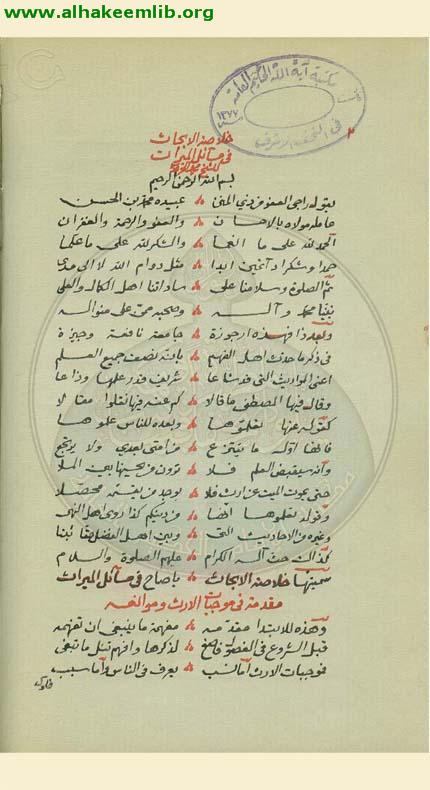 www.alhakeemlib.org
مكتبة آية الله الحكيم العامة
١٣٧٧
في النجف الاشرف
٢
خلاصة الابحاث
في مسائل الميراث
بسم الله الرحمن الرحيم
يقول راجي العفو من ذي المنن عبيده محمد بن الحسن
عامله مولاه بالاحسان والعفو والرحمة والغفران
الحمد لله على ما انعما والشكر لله على ما علما
حمدا وشكرا دائمين ابدا مثل دوام الله لا الى مدى
ثم الصلوة وسلامنا على ساداتنا اهل الكمال والعلى
نبينا محمد وآله وصحبه ممن على منواله
وبعد ذا فهذه ارجوزة جامعة نافعة وجيزة
في ذكر ما حدث اهل الفهم بانه لنصف جميع العلم
اعني المواريث التي قد شاعا شريف قدر علمها وذاعا
وقال فيها المصطفى ما قالا كم عنه فيها نقلوا مقالا
كقوله عنها تعلموها وبعده للناس علموها
فانها اوله ما ينتزع من امتي بعدي ولا يرتجع
وانه سيقبض العلم فلا ترون من يحييها بين الملا
حتى يموت الميت عن ارث فلا يوجد من
وقوله تعلموها انها من دينكم كذا روى اهل النهى
وغيره من الاحاديث التي وبين اهل الفضل
كذاك حث آله الكرام عليهم الصلوة والسلام
سميتها خلاصة الابحاث يا صاح في مسائل الميراث
مقدمة في موجبات الارث وموانعه
وهذه للابتدا مقدمه مفهمة ما ينبغي ان تفهمه
قبل الشروع في الفصول فاصغ لذكرها وافهم تنل ما تبتغي
فموجبات الارث اما نسب يعرف في الناس واما سبب